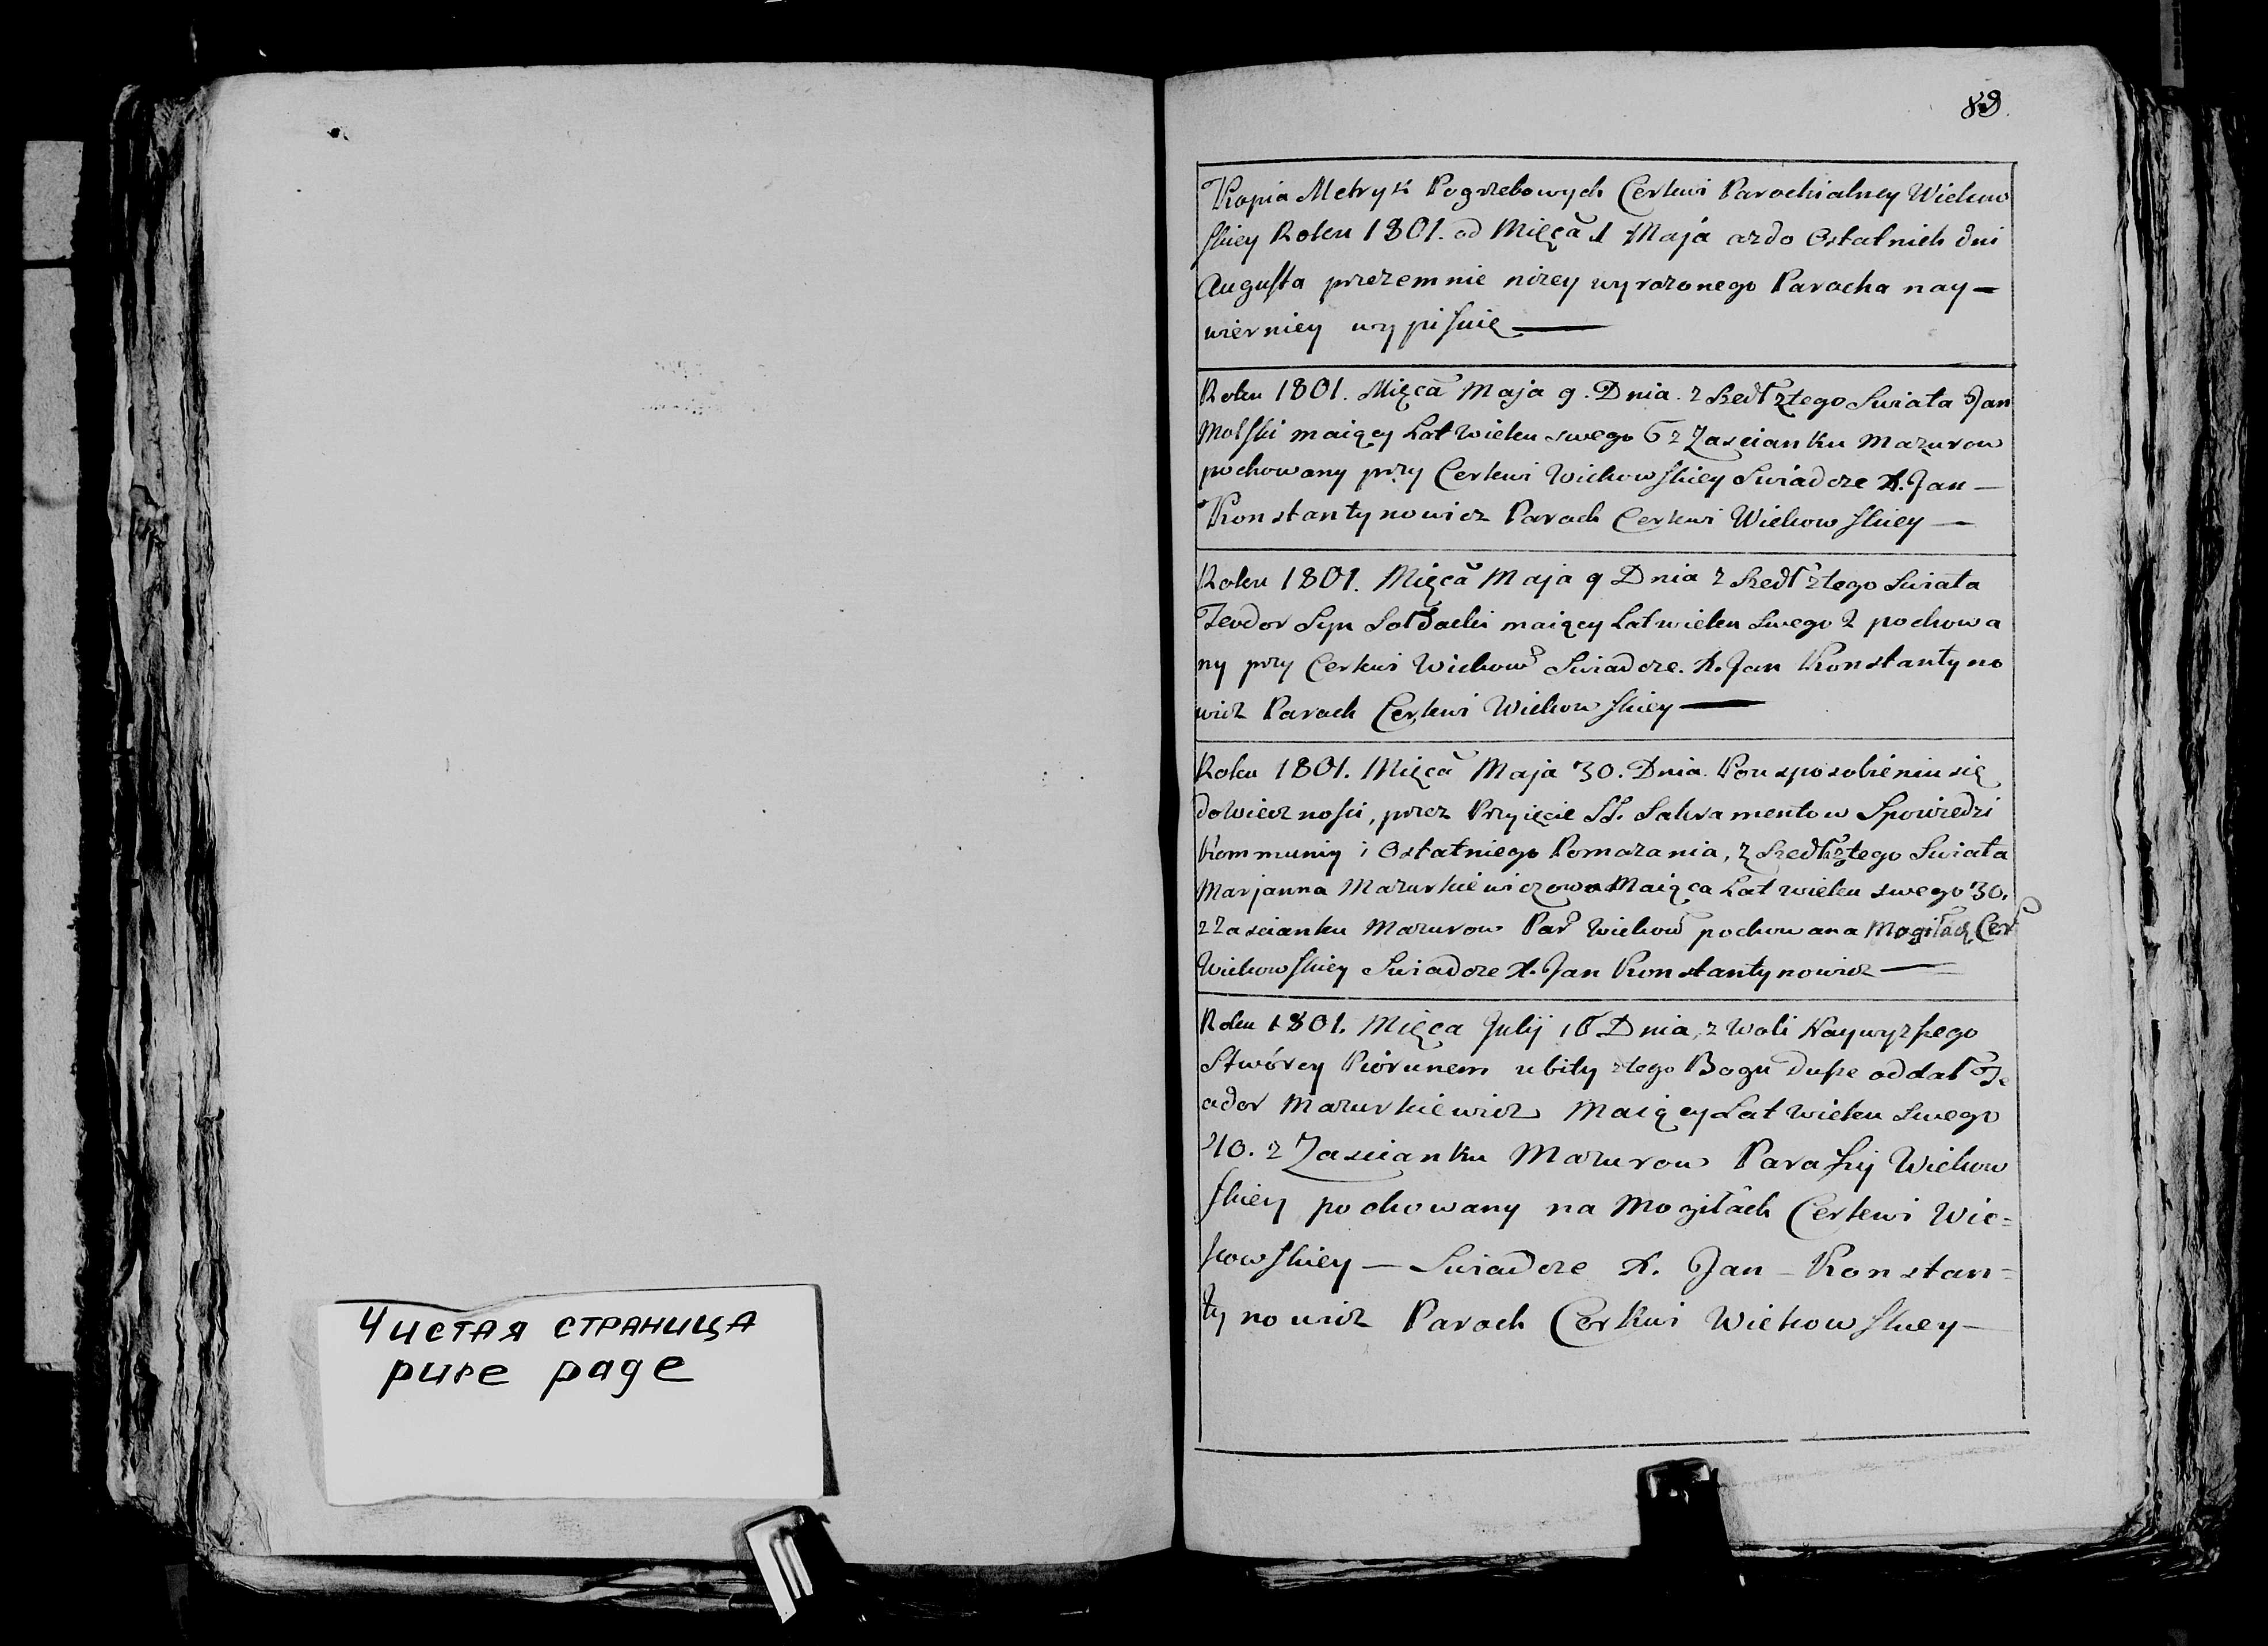 Чистая страница
pure page
89.
Kopia Metryk Pogrzebowych Cerkwi Parochialney Wickow
skiey Roku 1801. od Mięca 1 Maja azdo Ostatnich dni
Augusta przezemnie nizey wyrazonego Parocha nay-
wierniey wypisuię —
Roku 1801. Mięca Maja 9. Dnia zszedł ztego Swiata Jan
Molski maiący Lat wieku swego 6 z Zascianku Mazurow
pochowany przy Cerkwi Wickowskiey Swiadcze X. Jan —
Konstantynowicz Paroch Cerkwi Wickowskiey —
Roku 1801. Mięca Maja 9 Dnia zszedł ztego Swiata
Teodor Syn Sołdacki maiący Lat wieku swego 2 pochowa
ny przy Cerkwi Wickow Swiadcze. X. Jan Konstantyno
wicz Paroch Cerkwi Wickowskiey —
Roku 1801. Mięca Maja 30. Dnia. Pousposobieniu się
dowiecznosci, przez Przyięcie SS. Sakramentow Spowiedzi
Kommuniy i Ostatniego Pomazania, zszedł ztego Swiata
Marjanna Mazurkiewiczowa Maiąca Lat wieku swego 30.
z Zascianku Mazurow Par Wickow pochowana Mogiłach Cer
Wickowskiey Swiadcze X. Jan Konstantynowicz —
Roku 1801. Mięca Julij 16 Dnia, z Woli Naywyzszego
Stwórcy Piorunem ubity ztego Bogu Dusze oddał Te
odor Mazurkiewicz Maiący Lat wieku swego
40. z Zascianku Mazurow Parafij Wickow
skiey pochowany na Mogiłach Cerkwi Wic=
kowskiey — Swiadcze X. Jan — Konstan=
tynowicz Paroch Cerkwi Wickowskiey —